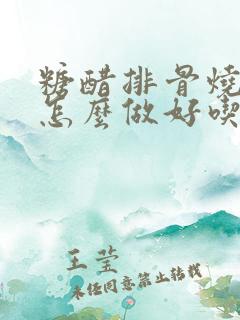 糖醋排骨燒
怎麼做好喫
王莹
未经同意禁止转载